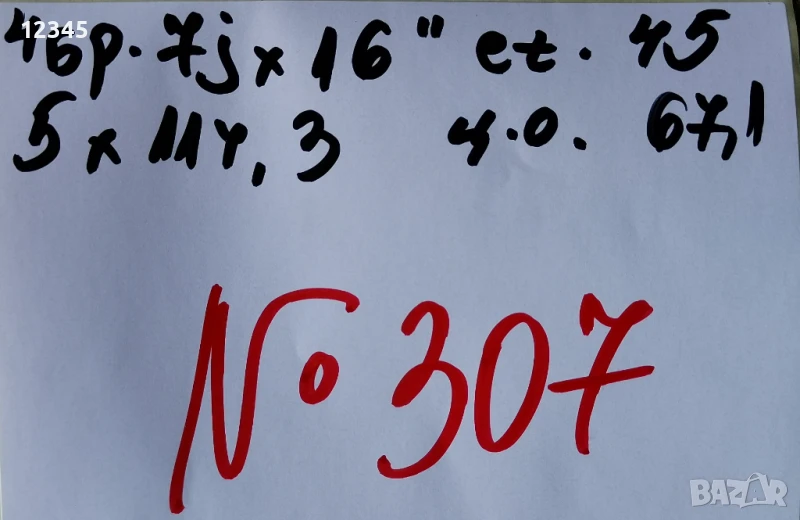 12345
4бр. 7j x 16" et. 45
5 x 114,3 ц.о. 67,1
№ 307
BAZAR